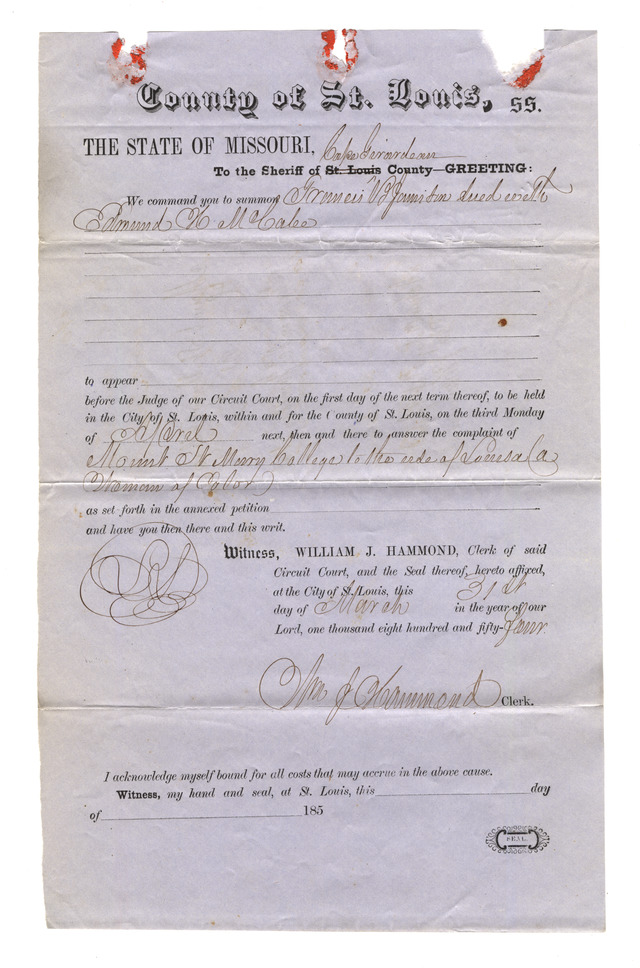 County of St. Louis, ss.
THE STATE OF MISSOURI,
Cape Girardeau
To the Sheriff of St. Louis County—GREETING:
We command you to summon Francis sued with
Edmund H McCabe
to appear
before the Judge of our Circuit Court, on the first day of the next term thereof, to be held
in the City of St. Louis, within and for the County of St. Louis, on the third Monday
of April next, then and there to answer the complaint of
Mount St Mary College to the use of Louisa (a
Woman of Color)
as set forth in the annexed petition
and have you then there and this writ.
Witness, WILLIAM J. HAMMOND, Clerk of said
Circuit Court, and the Seal thereof, hereto affixed,
at the City of St. Louis, this 31st
day of March in the year of our
Lord, one thousand eight hundred and fifty-four
Wm J Hammond Clerk.
I acknowledge myself bound for all costs that may accrue in the above cause.
Witness, my hand and seal, at St. Louis, this day
of 185
SEAL.